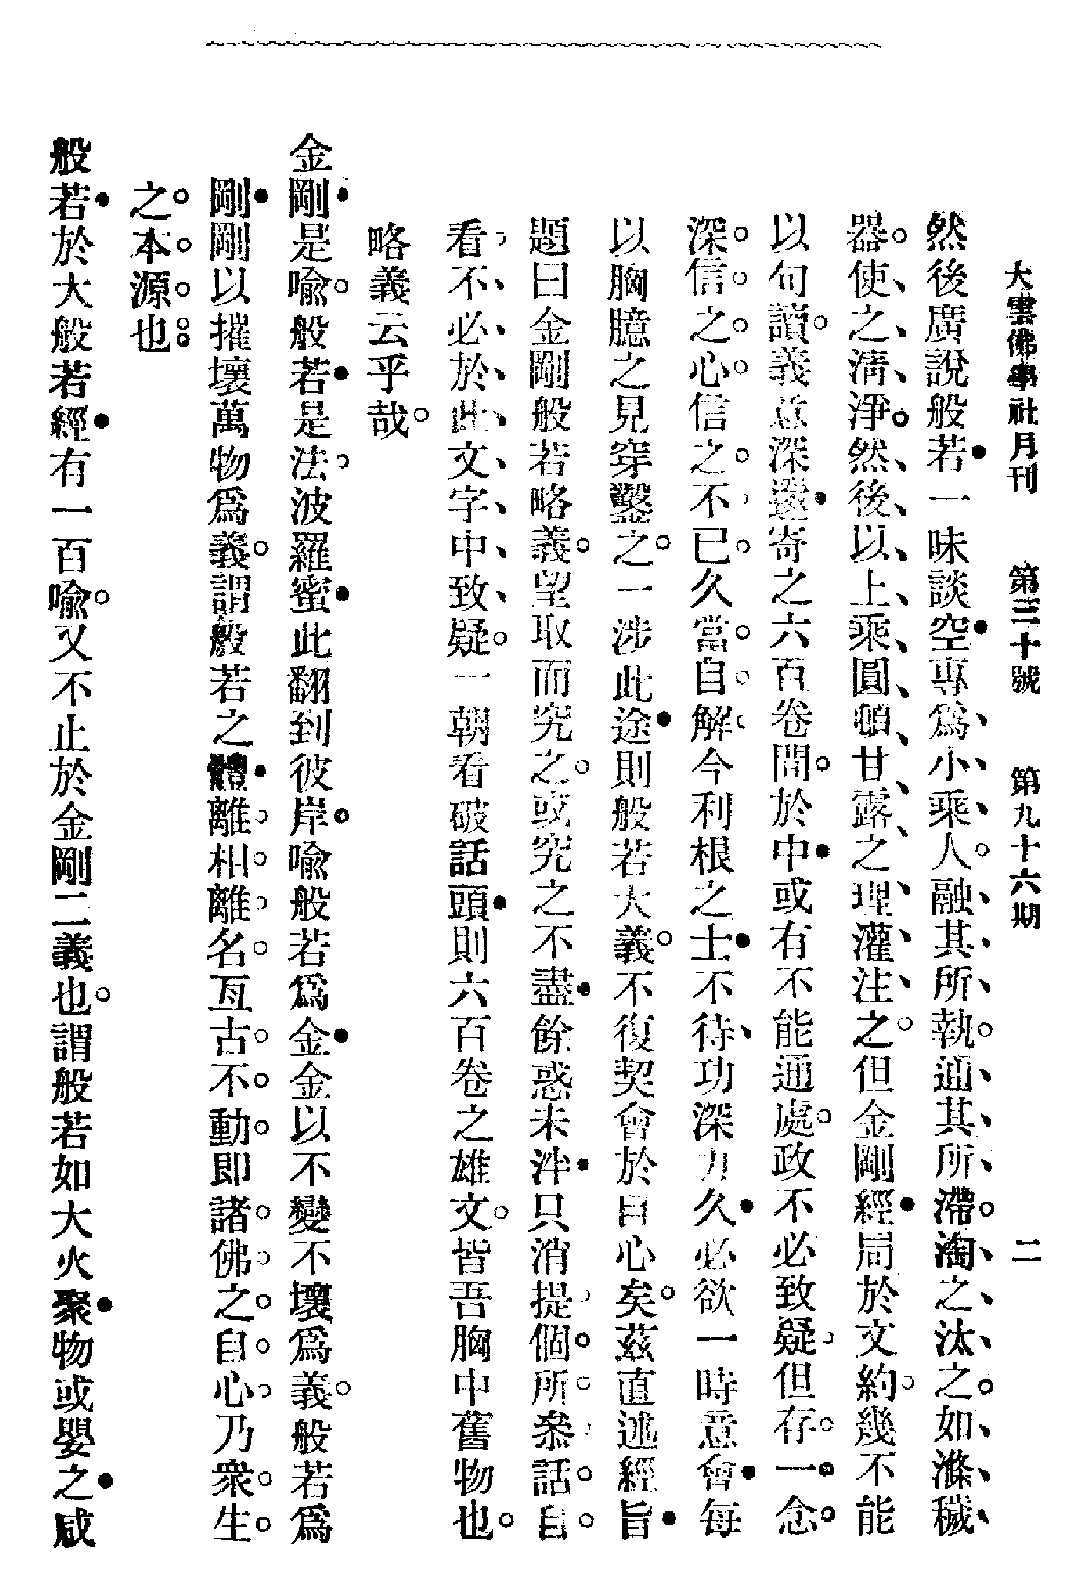 大雲佛學社月刊 第三十號 第九十六期 二
然後廣說般若一味談空專爲小乘人融其所執通其所滯淘之汰之如滌穢
器使之清淨然後以上乘圓頓甘露之理灌注之但金剛經局於文約幾不能
以句讀義意深邃寄之六百卷間於中或有不能通處政不必致疑但存一念
深信之心信之不已久當自解今利根之士不待功深力久必欲一時意會每
以胸臆之見穿鑿之一涉此途則般若大義不復契會於自心矣茲直述經旨
題曰金剛般若略義望取而究之或究之不盡餘惑未泮只消提個所叅話自
看不必於此文字中致疑一朝看破話頭則六百卷之雄文皆吾胸中舊物也
略義云乎哉
金剛是喩般若是法波羅蜜此翻到彼岸喩般若爲金金以不變不壞爲義般若爲
剛剛以摧壞萬物爲義謂般若之體離相離名亙古不動即諸佛之自心乃衆生
之本源也
般若於大般若經有一百喩又不止於金剛二義也謂般若如大火聚物或嬰之咸